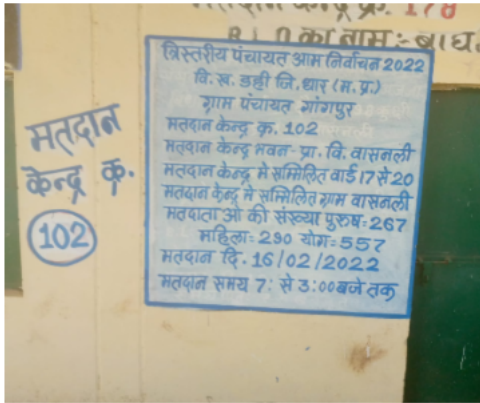 मतदान केन्द्र क्र. 178
B.L.O का नाम :- बाघ
त्रिस्तरीय पंचायत आम निर्वाचन 2022
वि. ख. डही जि. धार (म. प्र.)
ग्राम पंचायत गांगपुर
मतदान केन्द्र क्र. 102
मतदान केन्द्र भवन - प्रा. वि. वासनली
मतदान केन्द्र मे सम्मिलित वार्ड 17 से 20
मतदान केन्द्र मे सम्मिलित ग्राम वासनली
मतदाता ओ की संख्या पुरुष = 267
महिला = 290 योग = 557
मतदान दि. 16/02/2022
मतदान समय 7: से 3:00 बजे तक
मतदान
केन्द्र क्र.
102